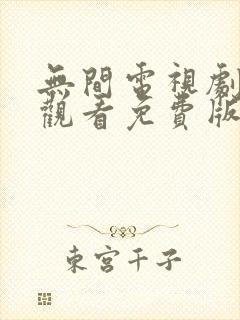 無間電視劇
觀看免費版
東宮千子